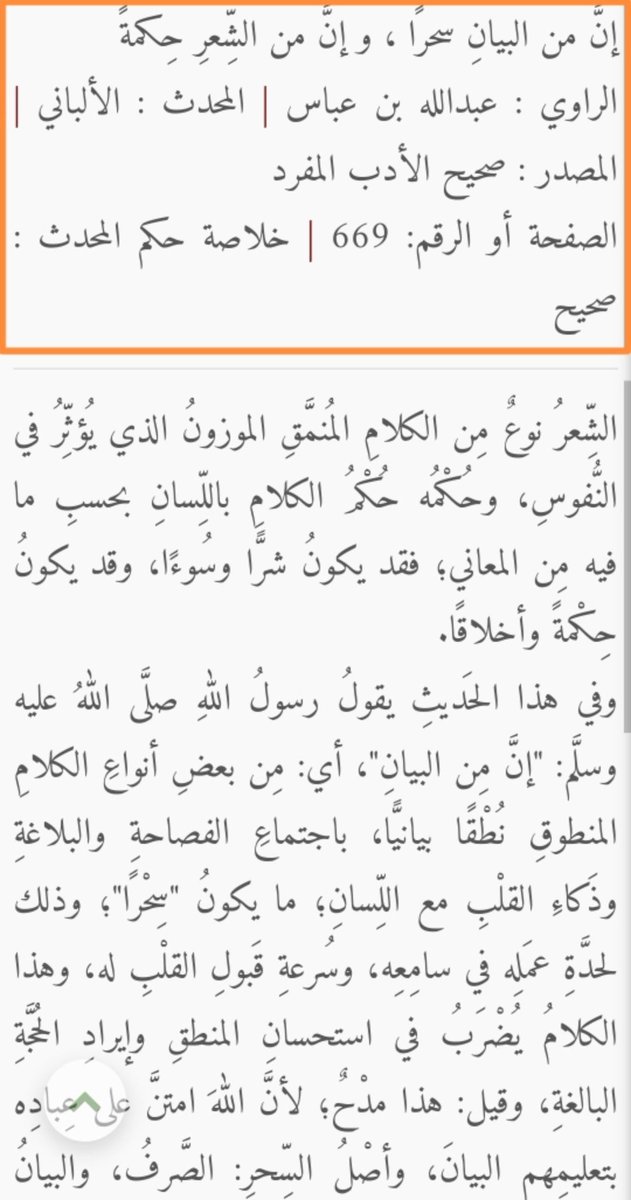 إنَّ من البيانِ سحرًا ، و إنَّ من الشِّعرِ حِكمةً
الراوي : عبدالله بن عباس | المحدث : الألباني |
المصدر : صحيح الأدب المفرد
الصفحة أو الرقم: 669 | خلاصة حكم المحدث :
صحيح
الشِّعرُ نوعٌ مِن الكلامِ المُنمَّقِ الموزونُ الذي يُؤثِّرُ في
النُّفوسِ، وحُكْمُه حُكْمُ الكلامِ باللِّسانِ بحسبِ ما
فيه مِن المعاني؛ فقد يكونُ شرًّا وسُوءًا، وقد يكونُ
حِكْمةً وأخلاقًا.
وفي هذا الحَديثِ يقولُ رسولُ اللهِ صلَّى اللهُ عليه
وسلَّم: "إنَّ مِن البيانِ"، أي: مِن بعضِ أنواعِ الكلامِ
المنطوقِ نُطْقًا بيانيًّا، باجتماعِ الفصاحةِ والبلاغةِ
وذَكاءِ القلْبِ مع اللِّسانِ؛ ما يكونُ "سِحْرًا"؛ وذلك
لحدَّةِ عمَلِه في سامِعِه، وسُرعةِ قَبولِ القلْبِ له، وهذا
الكلامُ يُضْرَبُ في استحسانِ المنطقِ وإيرادِ الحُجَّةِ
البالغةِ، وقيل: هذا مدْحٌ؛ لأنَّ اللهَ امتنَّ على عِبادِه
بتعليمِهم البيانَ، وأصْلُ السِّحرِ: الصَّرفُ، والبيانُ